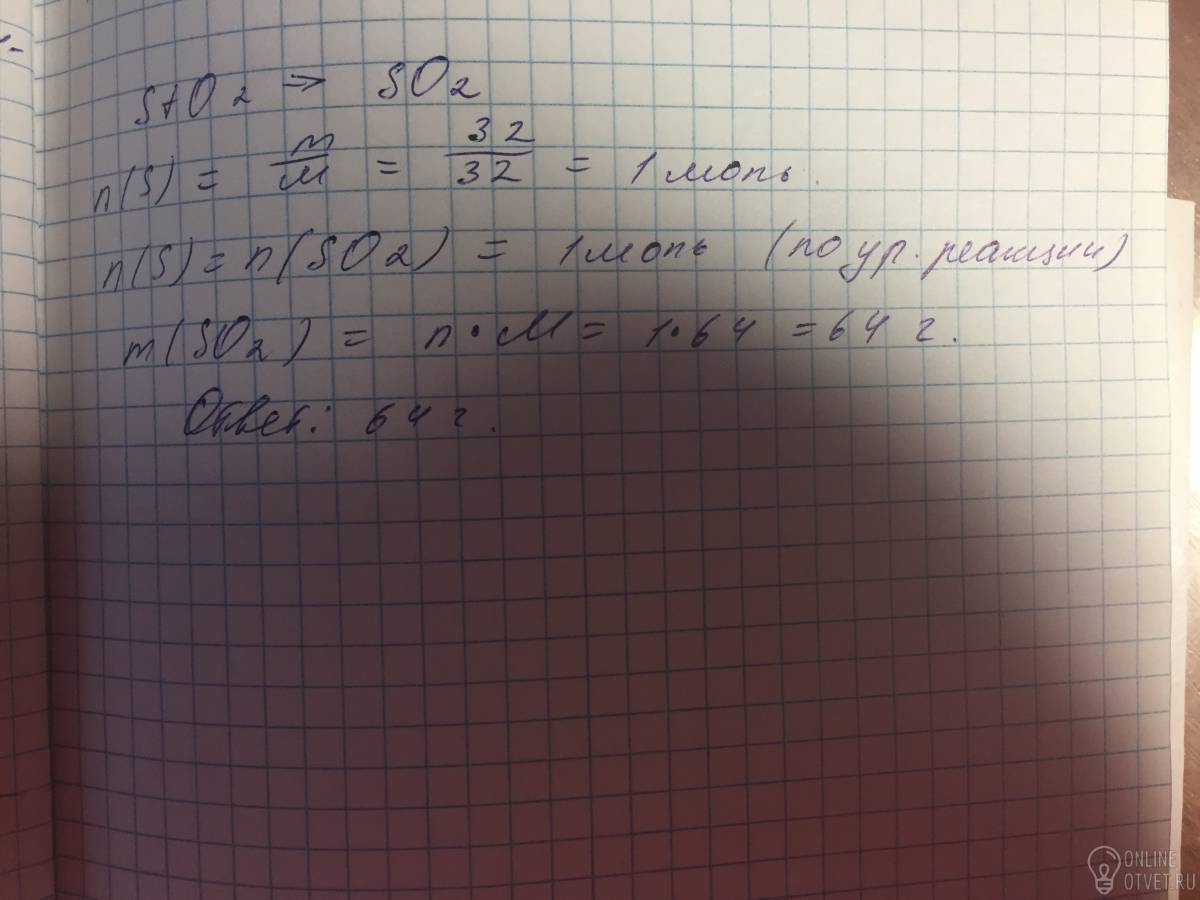 S+O2 ⇒ SO2
n(S) = m/M = 32/32 = 1 моль.
n(S) = n(SO2) = 1 моль (по ур. реакции)
m(SO2) = n·M = 1·64 = 64 г.
Ответ: 64 г.
ONLINE
OTVET.RU